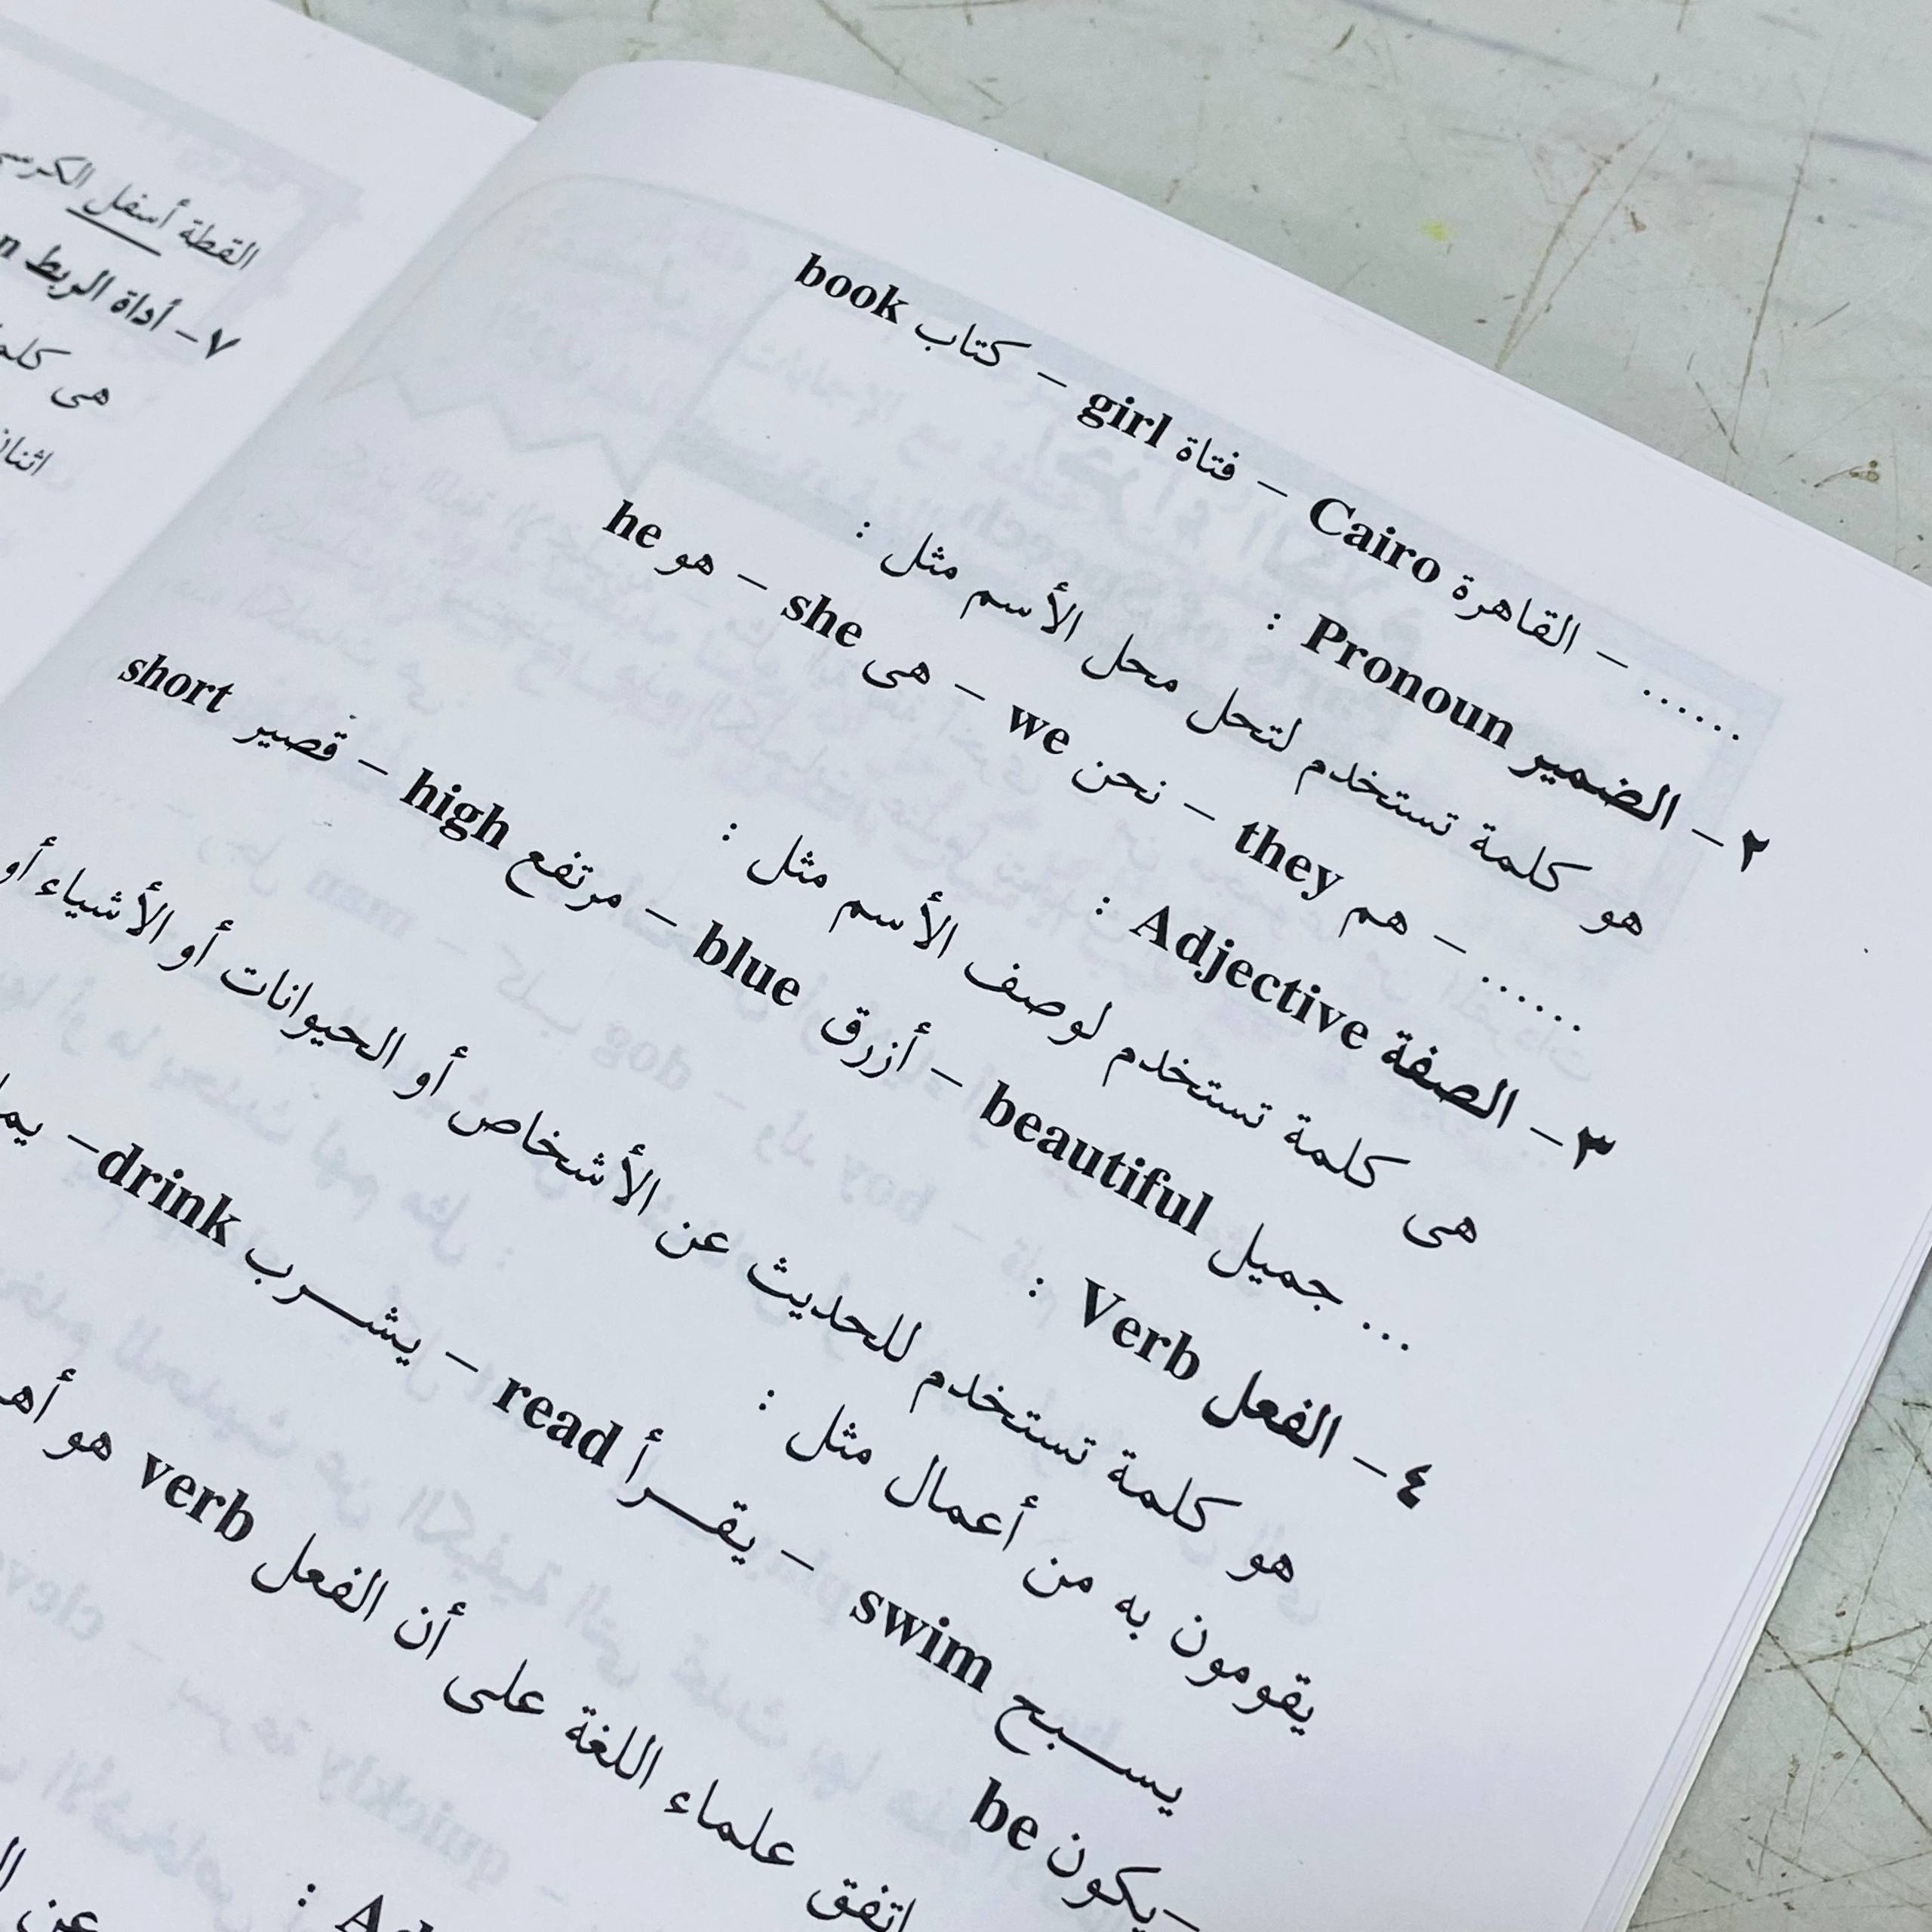 القطة أسفل الكرسى
٧ – أداة الربط
هى
اثنان
..... – القاهرة Cairo – فتاة girl – كتاب book
٢ – الضمير Pronoun :
هو كلمة تستخدم لتحل محل الأسم مثل :
...... – هم they – نحن we – هى she – هو he
٣ – الصفة Adjective :
هى كلمة تستخدم لوصف الأسم مثل :
... جميل beautiful – أزرق blue – مرتفع high – قصير short
٤ – الفعل Verb :
هو كلمة تستخدم للحديث عن الأشخاص أو الحيوانات أو الأشياء أو
يقومون به من أعمال مثل :
يســبح swim – يقــرأ read – يشــرب drink–
–يكون be
اتفق علماء اللغة على أن الفعل verb هو
عن